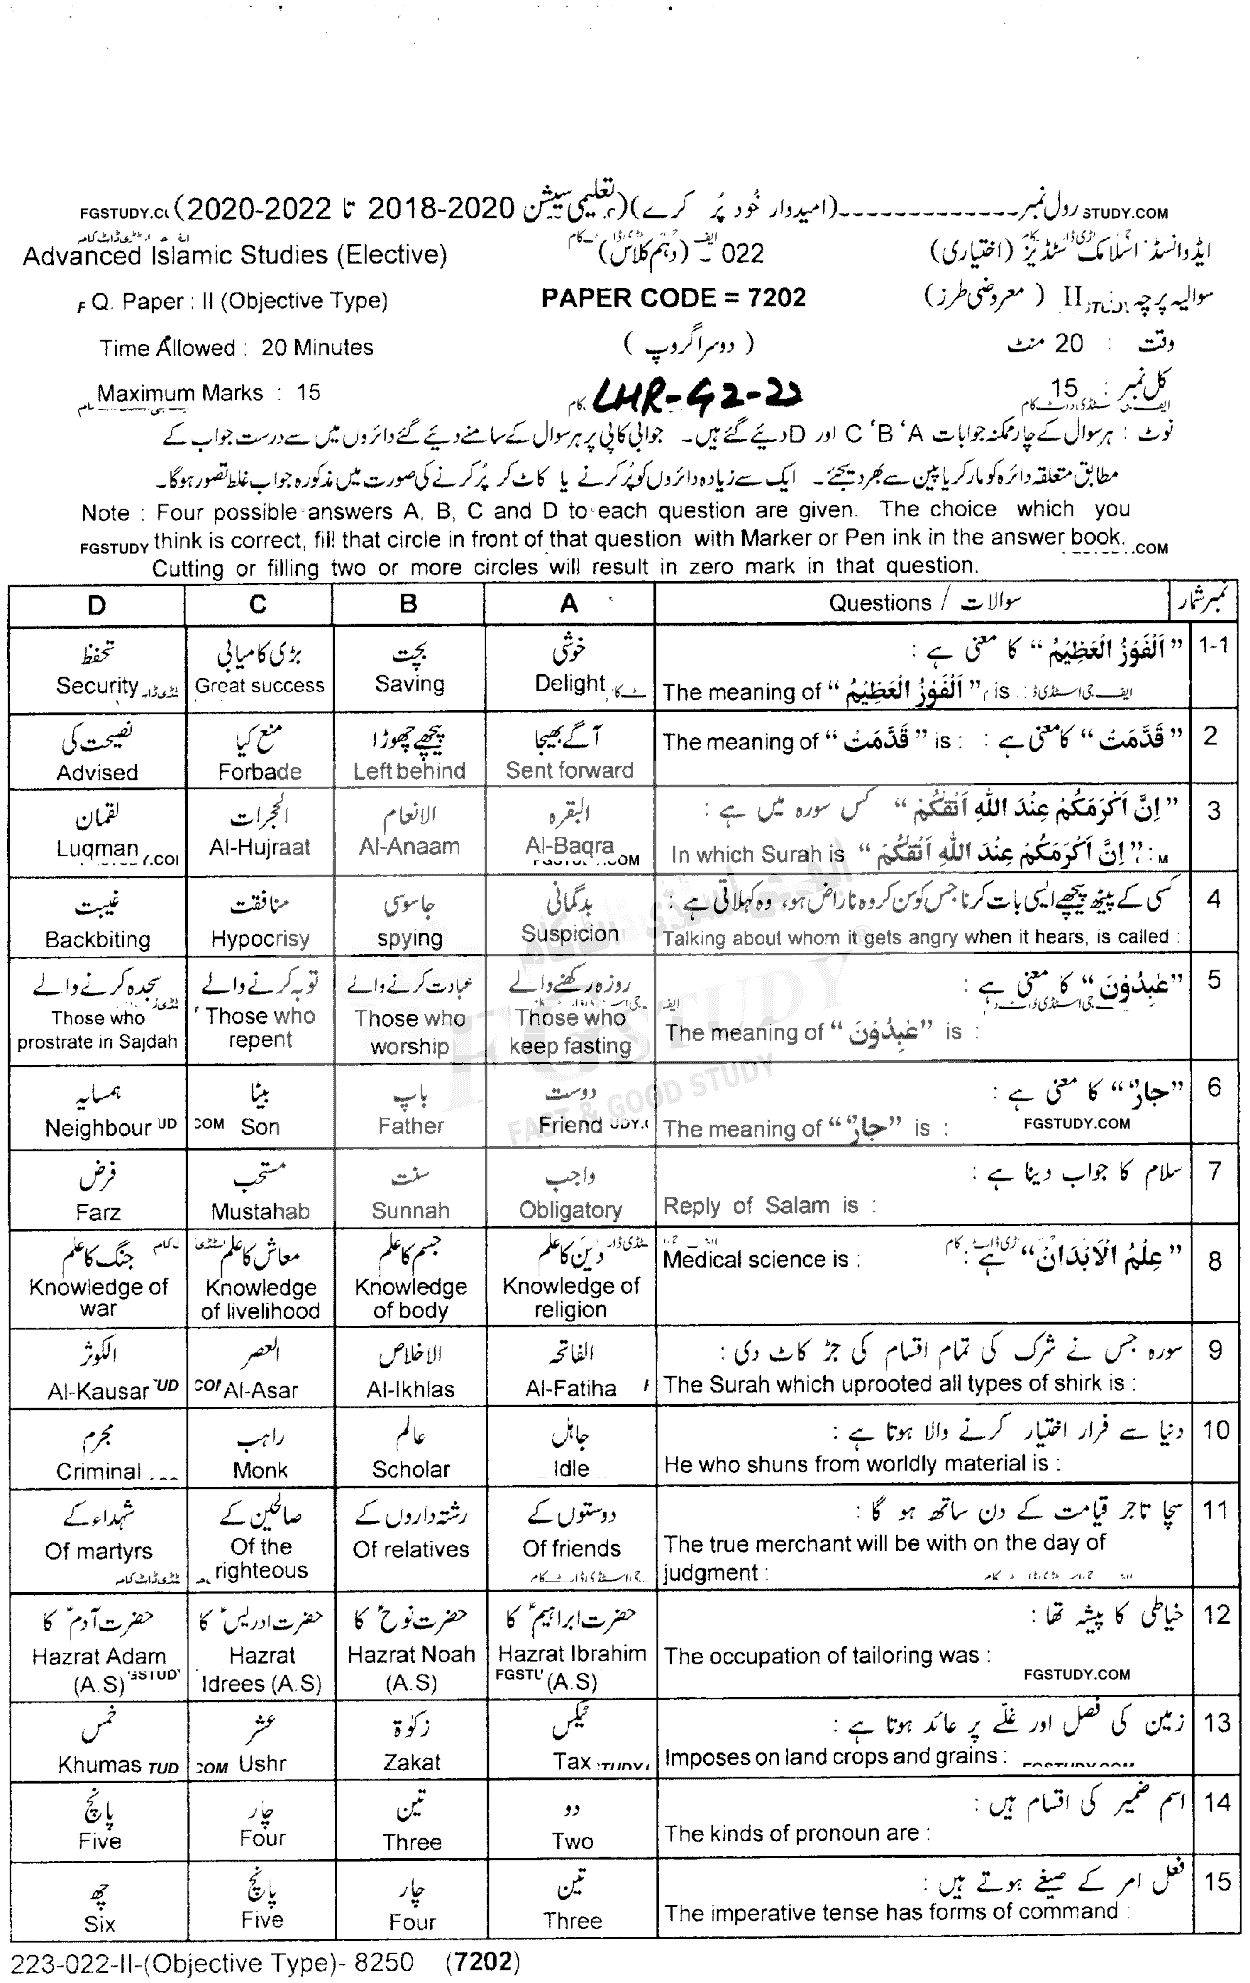 رول نمبر ---------------(امیدوار خود پُر کرے)(تعلیمی سیشن 2018-2020 تا 2020-2022)
STUDY.COM
ایڈوانسڈ اسلامک سٹڈیز (اختیاری) 022 - (دہم کلاس)
Advanced Islamic Studies (Elective)
سوالیہ پرچہ II (معروضی طرز) PAPER CODE = 7202 Q. Paper : II (Objective Type)
وقت : 20 منٹ (دوسرا گروپ) Time Allowed : 20 Minutes
کل نمبر : 15 LHR-G2-22 Maximum Marks : 15
نوٹ : ہر سوال کے چار ممکنہ جوابات A، B، C اور D دیئے گئے ہیں۔ جوابی کاپی پر ہر سوال کے سامنے دیئے گئے دائروں میں سے درست جواب کے
مطابق متعلقہ دائرہ کو مارکر یا پین سے بھر دیجئے۔ ایک سے زیادہ دائروں کو پُر کرنے یا کاٹ کر پُر کرنے کی صورت میں مذکورہ جواب غلط تصور ہوگا۔
Note : Four possible answers A, B, C and D to each question are given. The choice which you
FGSTUDY think is correct, fill that circle in front of that question with Marker or Pen ink in the answer book. .COM
Cutting or filling two or more circles will result in zero mark in that question.
نمبر شمار Questions / سوالات A B C D
1-1 "اَلْفَوْزُ الْعَظِيْمُ" کا معنی ہے : خوشی بچت بڑی کامیابی تحفظ
The meaning of "اَلْفَوْزُ الْعَظِيْمُ" is : Delight Saving Great success Security
2 "قَدَّمَتْ" کا معنی ہے : The meaning of "قَدَّمَتْ" is : آگے بھیجا پیچھے چھوڑا منع کیا نصیحت کی
Sent forward Left behind Forbade Advised
3 "اِنَّ اَكْرَمَكُمْ عِنْدَ اللّٰهِ اَتْقٰكُمْ" کس سورہ میں ہے : البقرہ الانعام الحجرات لقمان
In which Surah is "اِنَّ اَكْرَمَكُمْ عِنْدَ اللّٰهِ اَتْقٰكُمْ" : Al-Baqra Al-Anaam Al-Hujraat Luqman
4 کسی کے پیٹھ پیچھے ایسی بات کرنا جس کو سن کر وہ ناراض ہو، وہ کہلاتی ہے : بدگمانی جاسوسی منافقت غیبت
Talking about whom it gets angry when it hears, is called : Suspicion spying Hypocrisy Backbiting
5 "عٰبِدُوْنَ" کا معنی ہے : روزہ رکھنے والے عبادت کرنے والے توبہ کرنے والے سجدہ کرنے والے
The meaning of "عٰبِدُوْنَ" is : Those who keep fasting Those who worship Those who repent Those who prostrate in Sajdah
6 "جارٌ" کا معنی ہے : دوست باپ بیٹا ہمسایہ
The meaning of "جارٌ" is : FGSTUDY.COM Friend Father Son Neighbour
7 سلام کا جواب دینا ہے : واجب سنت مستحب فرض
Reply of Salam is : Obligatory Sunnah Mustahab Farz
8 "عِلْمُ الْاَبْدَانْ" ہے : Medical science is : دین کا علم جسم کا علم معاش کا علم جنگ کا علم
Knowledge of religion Knowledge of body Knowledge of livelihood Knowledge of war
9 سورہ جس نے شرک کی تمام اقسام کی جڑ کاٹ دی : الفاتحہ الاخلاص العصر الکوثر
The Surah which uprooted all types of shirk is : Al-Fatiha Al-Ikhlas Al-Asar Al-Kausar
10 دنیا سے فرار اختیار کرنے والا ہوتا ہے : جاہل عالم راہب مجرم
He who shuns from worldly material is : Idle Scholar Monk Criminal
11 سچا تاجر قیامت کے دن ساتھ ہو گا : دوستوں کے رشتہ داروں کے صالحین کے شہداء کے
The true merchant will be with on the day of judgment : Of friends Of relatives Of the righteous Of martyrs
12 خیاطی کا پیشہ تھا : حضرت ابراہیمؑ کا حضرت نوحؑ کا حضرت ادریسؑ کا حضرت آدمؑ کا
The occupation of tailoring was : FGSTUDY.COM Hazrat Ibrahim (A.S) Hazrat Noah (A.S) Hazrat Idrees (A.S) Hazrat Adam (A.S)
13 زمین کی فصل اور غلے پر عائد ہوتا ہے : ٹیکس زکوٰۃ عشر خمس
Imposes on land crops and grains : Tax Zakat Ushr Khumas
14 اسم ضمیر کی اقسام ہیں : دو تین چار پانچ
The kinds of pronoun are : Two Three Four Five
15 فعل امر کے صیغے ہوتے ہیں : تین چار پانچ چھ
The imperative tense has forms of command : Three Four Five Six
FGSTUDY
FAST & GOOD STUDY
223-022-II-(Objective Type)- 8250 (7202)